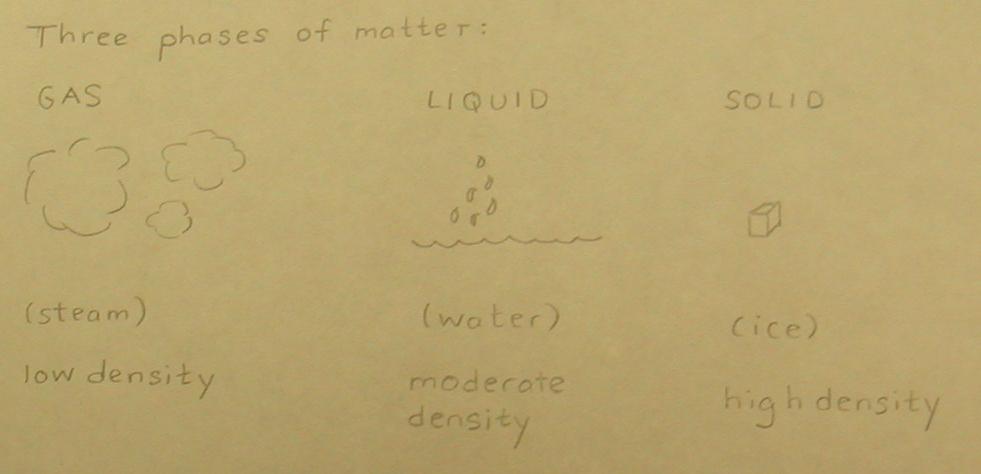 Three phases of matter:
GAS LIQUID SOLID
(steam) (water) (ice)
low density moderate density high density